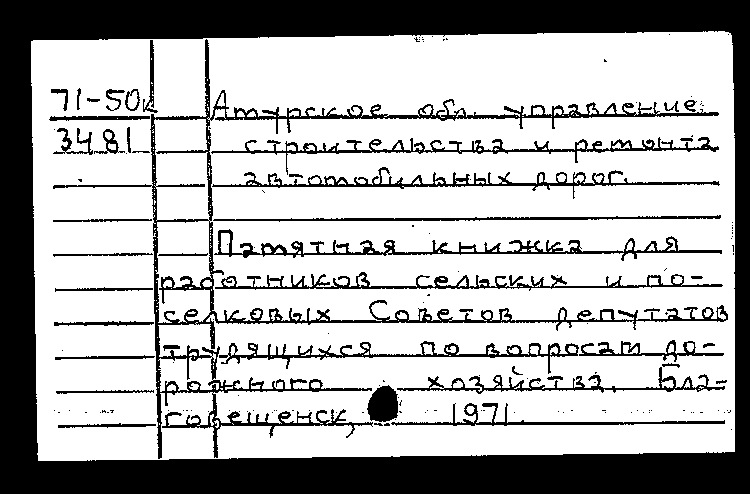 71-50к Амурское обл. управление
3481 строительства и ремонта
автомобильных дорог.
Памятная книжка для
работников сельских и по-
селковых Советов депутатов
трудящихся по вопросам до-
рожного хозяйства. Бла-
говещенск, 1971.